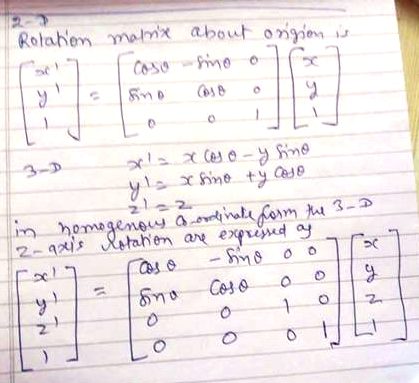 2-D
Rotation matrix about origion is
[x' y' 1] = [cosθ -sinθ 0; sinθ cosθ 0; 0 0 1] [x y 1]
3-D x' = x cosθ - y sinθ
y' = x sinθ + y cosθ
z' = z
in homogenous co-ordinate form the 3-D
z-axis rotation are expressed as
[x' y' z' 1] = [cosθ -sinθ 0 0; sinθ cosθ 0 0; 0 0 1 0; 0 0 0 1] [x y z 1]